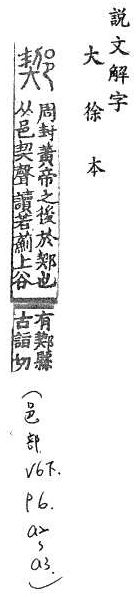 説文解字
大徐本
周封黃帝之後於也
从邑契聲讀若薊上谷
有縣
古詣切
(邑部 V6下. P6. a2~a3.)